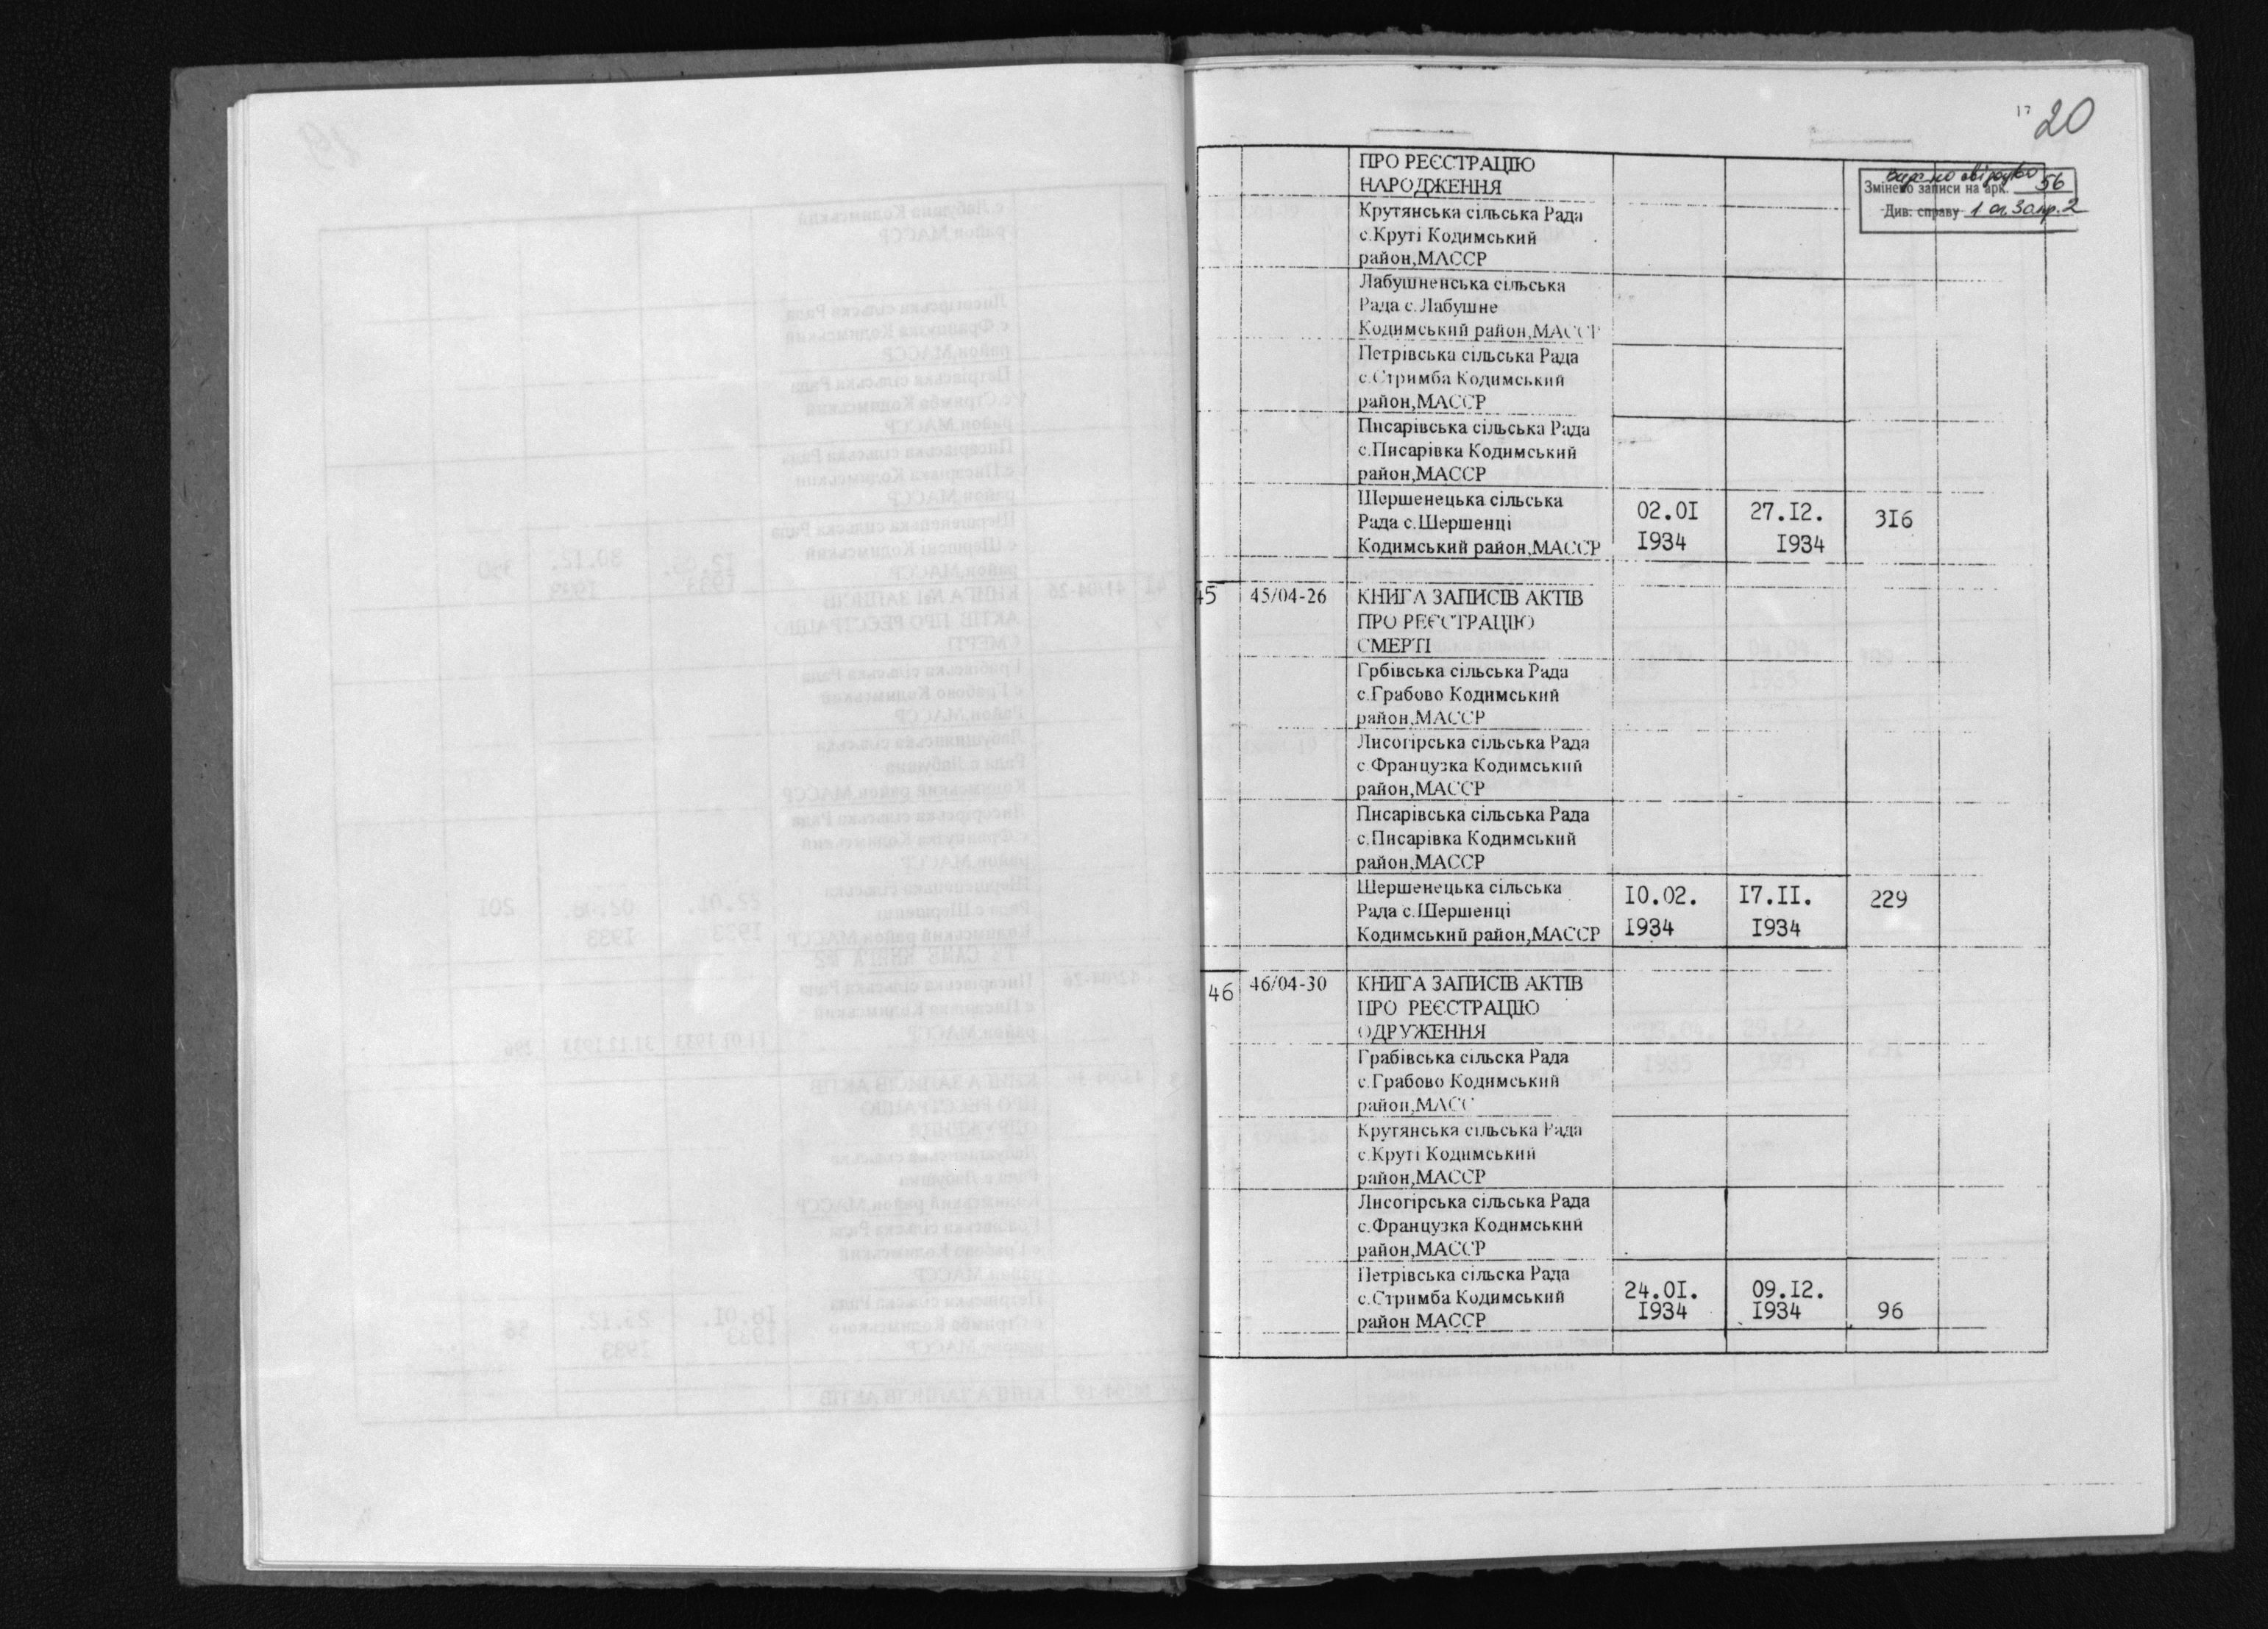 17
20
ПРО РЕЄСТРАЦІЮ
НАРОДЖЕННЯ
Змінено записи на арк. 56
Див. справу 1 оп. 3о пр. 2
Крутянська сільська Рада
с.Круті Кодимський
район,МАССР
Лабушненська сільська
Рада с.Лабушне
Кодимський район,МАССР
Петрівська сільська Рада
с.Стримба Кодимський
район,МАССР
Писарівська сільська Рада
с.Писарівка Кодимський
район,МАССР
Шершенецька сільська
Рада с.Шершенці
Кодимський район,МАССР
02.0I
I934
27.I2.
I934
3I6
45
45/04-26
КНИГА ЗАПИСІВ АКТІВ
ПРО РЕЄСТРАЦІЮ
СМЕРТІ
Грбівська сільська Рада
с.Грабово Кодимський
район,МАССР
Лисогірська сільська Рада
с Французка Кодимський
район,МАССР
Писарівська сільська Рада
с.Писарівка Кодимський
район,МАССР
Шершенецька сільська
Рада с.Шершенці
Кодимський район,МАССР
I0.02.
I934
I7.II.
I934
229
46
46/04-30
КНИГА ЗАПИСІВ АКТІВ
ПРО РЕЄСТРАЦІЮ
ОДРУЖЕННЯ
Грабівська сільска Рада
с.Грабово Кодимський
район,МАСС
Крутянська сільська Рада
с.Круті Кодимський
район,МАССР
Лисогірська сільська Рада
с.Французка Кодимський
район,МАССР
Петрівська сільска Рада
с.Стримба Кодимський
район МАССР
24.0I.
I934
09.I2.
I934
96